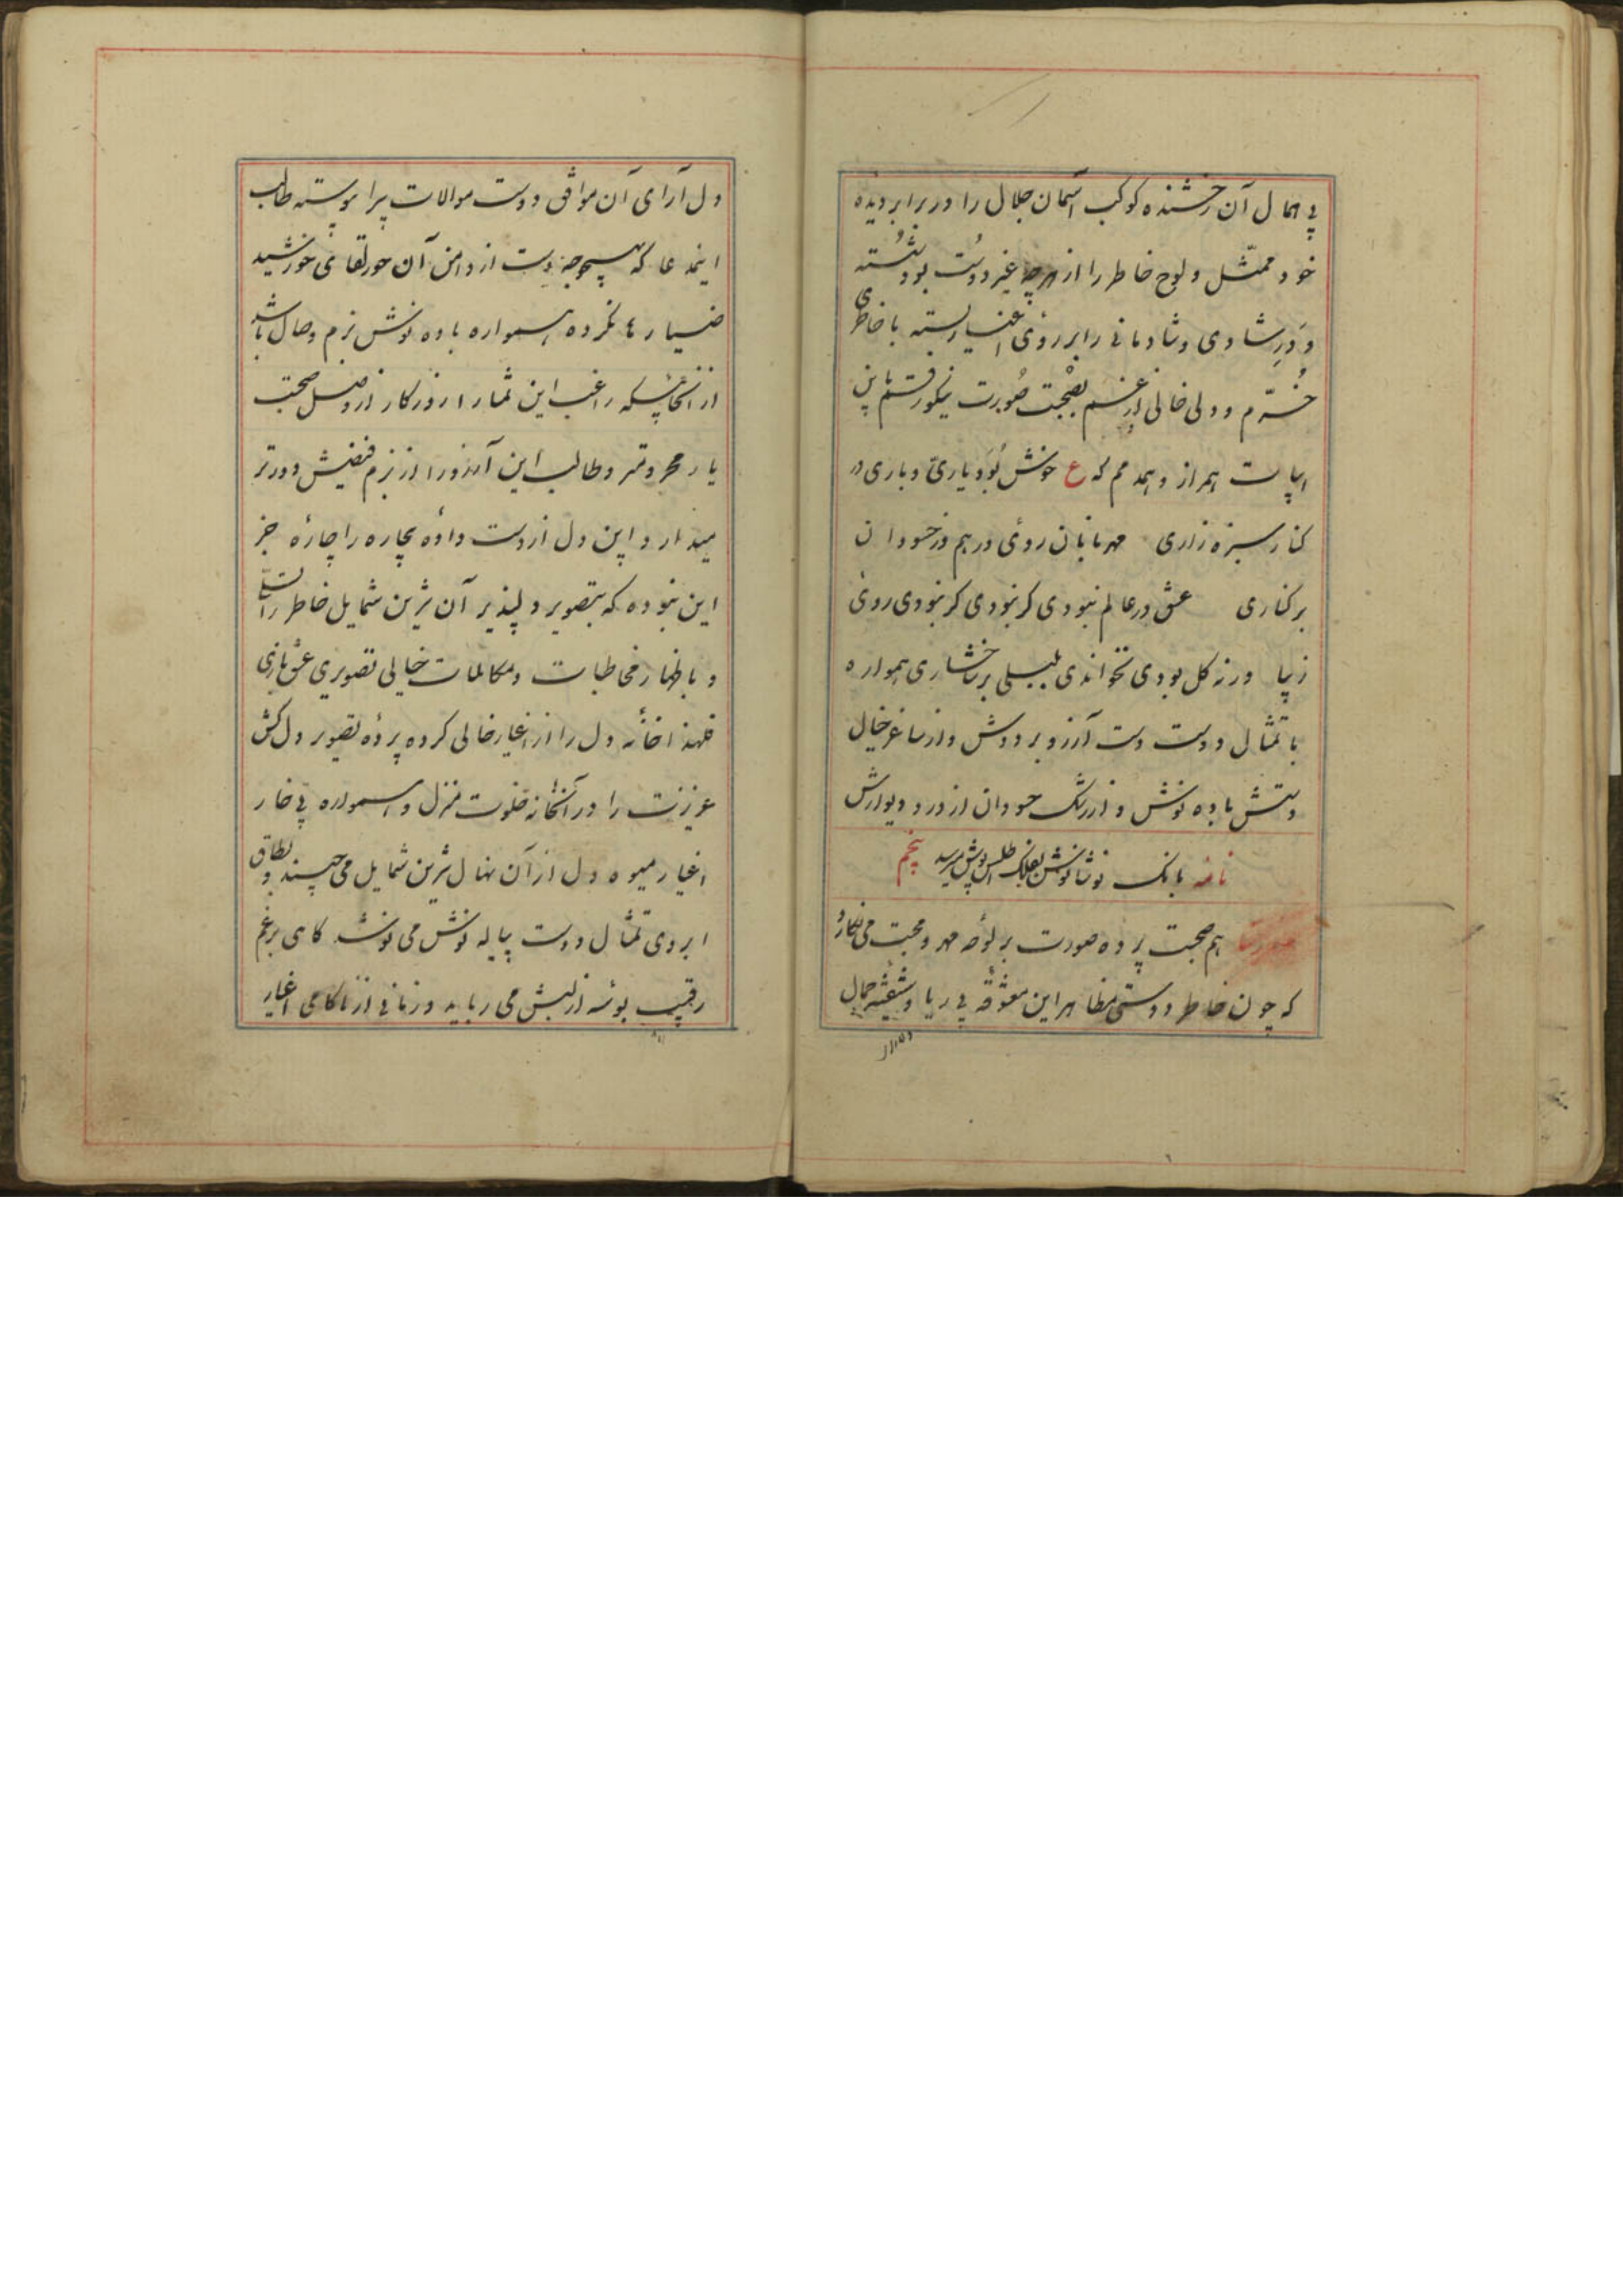 بی همال آن رخشنده کوکب آسمان جلال را در برابر دیده
خود ممثّل و لوح خاطر را از هرچه غیر دوست بود شُسته
و دَرِ شادی و شادمانی را بر روی اغیار بسته با خاطری
خُرّم و دلی خالی از غم بصُحبت صُورت نیکو رقم باین
ابیات همراز و همدمم که ع خوش بُوَد یاری و یاری در
کنار سبزه زاری مهربانان روی در هم وز حسودان
بر کناری عشق در عالم نبودی کر نبودی کر نبودی روی
زیبا ورنه کل بودی نخواندی بلبلی بر شاخساری همواره
با تمثال دوست دست آرزو بر دوش و از ساغر خیال
دستش باده نوش و از رشک حسودان از در و دیوارش
نامهٔ بانک نوشانوش بفلک اطلس پوش میرسد پنجم
هم صحبت پرده صورت بر لوحه مهر و محبت می نکارد
که چون خاطر دوستی مظاهر این معشوقه بی ریا و شیفته جمال
دل آرای آن موافق دوست موالات پیرا پیوسته طالب
اینمدعا که بهیچوجه دست از دامن آن حورلقای خورشید
ضیا رها نکرده همواره باده نوش بزم وصال باشد
از آنجائیکه راغب این تمنا را روزکار از وصل صحبت
یار محروم‌تر و طالب این آرزو را از بزم فیضش دورتر
میدارد و این دل از دست داده بیچاره را چارهٔ جز
این نبوده که بتصویر دلپذیر آن شیرین شمایل خاطر را تسلی
و باظهار مخاطبات و مکالمات خیالی تصویری عشق بازی
فلهذا خانه دل را از اغیار خالی کرده پردهٔ تصویر دل کش
عزیزت را در آنخانه خلوت منزل و همواره بی خار
اغیار میوه دل از آن نهال شیرین شمایل می چیند و بطاق
ابروی تمثال دوست پیاله نوش می نوشد کاهی برغم
رقیب بوسه از لبش می رباید و زمانی از ناکامی اغیار